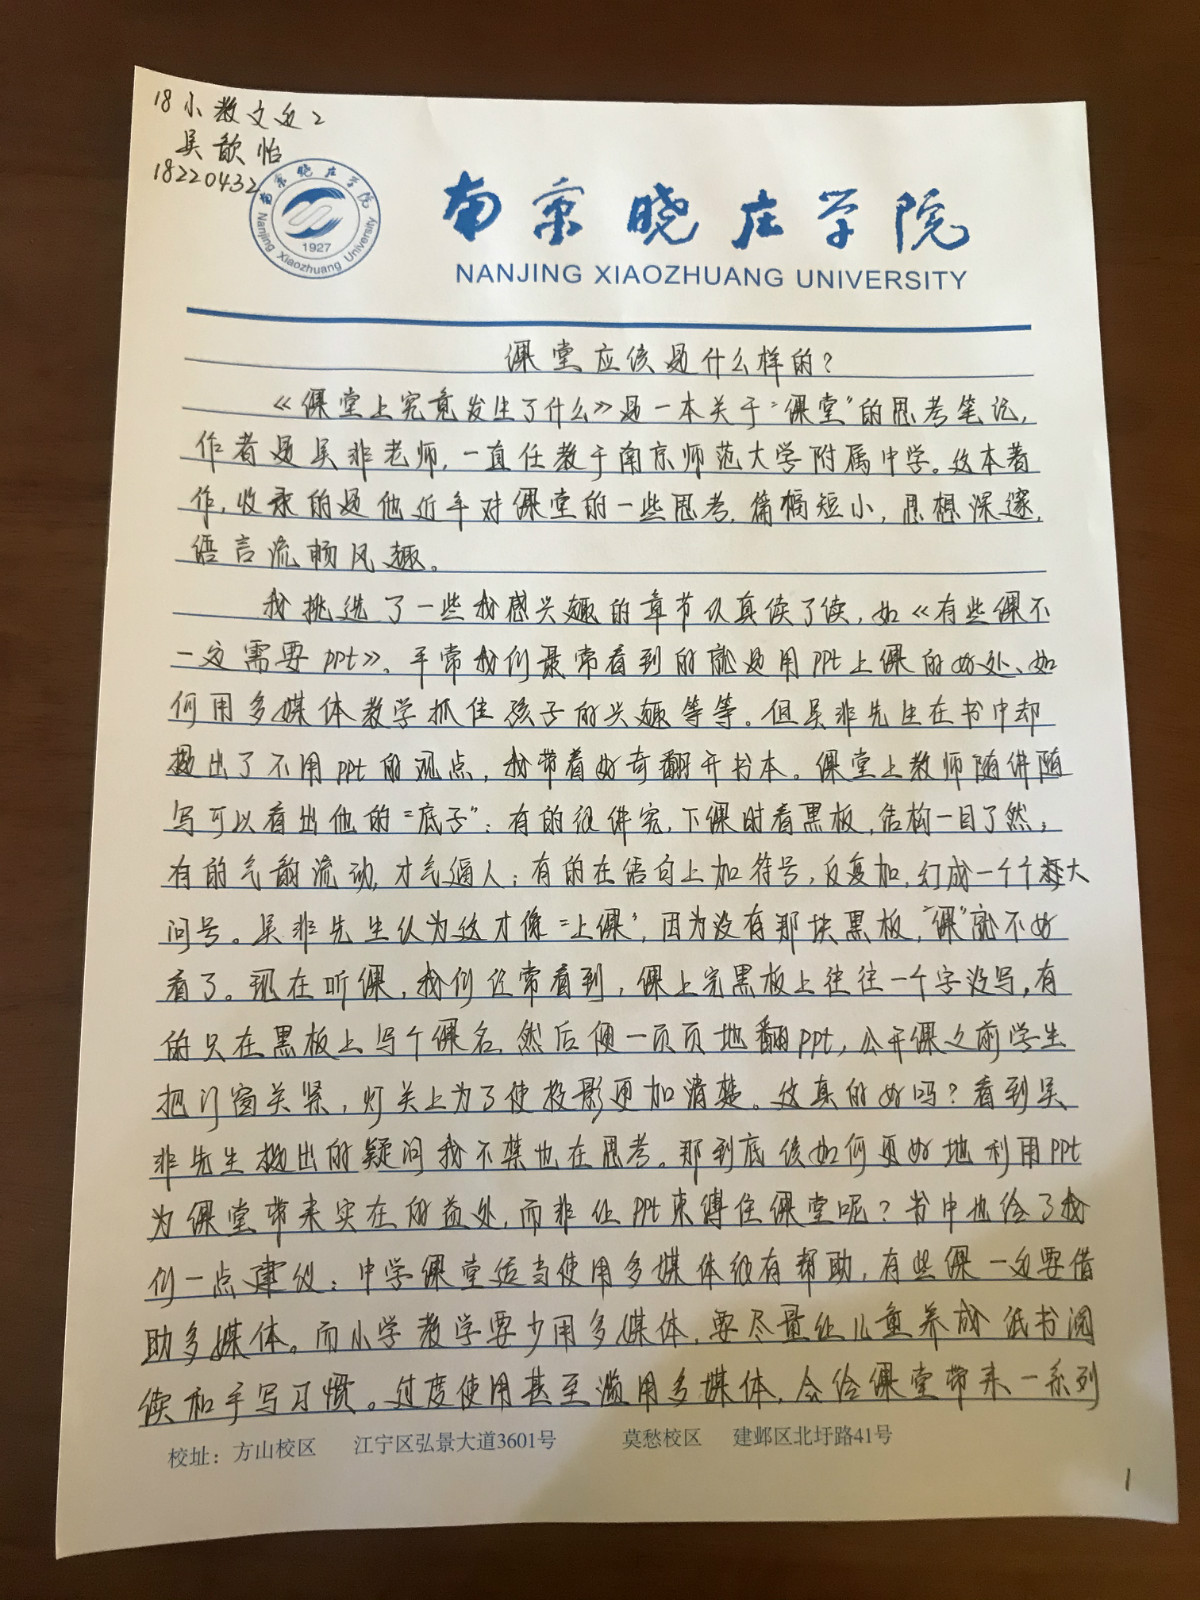 18小教文定2
吴歆怡
18220432
南京晓庄学院
Nanjing Xiaozhuang University
1927
南京晓庄学院
NANJING XIAOZHUANG UNIVERSITY
课堂应该是什么样的？
《课堂上究竟发生了什么》是一本关于“课堂”的思考笔记，
作者是吴非老师，一直任教于南京师范大学附属中学。这本著
作，收录的是他近年对课堂的一些思考，篇幅短小，思想深邃，
语言流畅风趣。
我挑选了一些我感兴趣的章节认真读了读，如《有些课不
一定需要ppt》、平常我们最常看到的就是用PPT上课的好处、如
何用多媒体教学抓住孩子的兴趣等等。但吴非先生在书中却
提出了不用ppt的观点，我带着好奇翻开书本。课堂上教师随讲随
写可以看出他的“底子”：有的很讲究，下课时看黑板，结构一目了然；
有的气韵流动，才气逼人；有的在语句上加符号，反复加，幻成一个个大
问号。吴非先生认为这才像“上课”，因为没有那块黑板，“课”就不好
看了。现在听课，我们经常看到，课上完黑板上往往一个字没写，有
的只在黑板上写个课名，然后便一页页地翻ppt，公开课之前学生
把门窗关紧，灯关上为了使投影更加清楚。这真的好吗？看到吴
非先生提出的疑问我不禁也在思考。那到底该如何更好地利用PPT
为课堂带来实在的益处，而非让PPT束缚住课堂呢？书中也给了我
们一点建议：中学课堂适当使用多媒体很有帮助，有些课一定要借
助多媒体。而小学教学要少用多媒体，要尽量让儿童养成纸书阅
读和手写习惯。过度使用甚至滥用多媒体，会给课堂带来一系列
校址：方山校区 江宁区弘景大道3601号 莫愁校区 建邺区北圩路41号
1